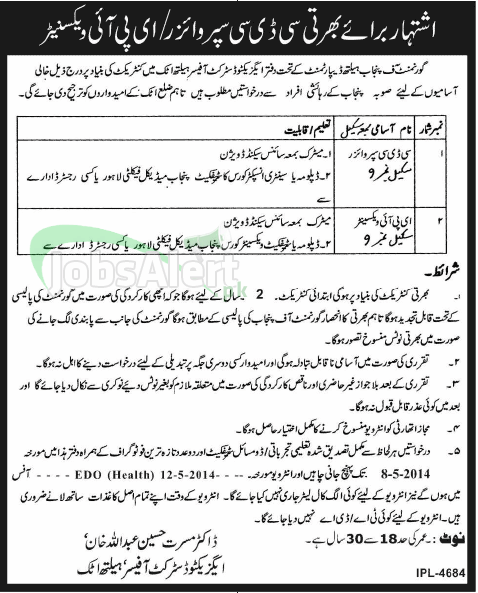 اشتہار برائے بھرتی سی ڈی سی سپروائزر/ای پی آئی ویکسنیٹر
گورنمنٹ آف پنجاب ہیلتھ ڈیپارٹمنٹ کے تحت دفتر ایگزیکٹو ڈسٹرکٹ آفیسر ہیلتھ اٹک میں کنٹریکٹ کی بنیاد پر درج ذیل خالی
آسامیوں کے لیئے صوبہ پنجاب کے رہائشی افراد سے درخواستیں مطلوب ہیں تاہم ضلع اٹک کے امیدواروں کو ترجیح دی جائے گی۔
نمبر شمار نام آسامی بمعہ سکیل تعلیم/قابلیت
۱ سی ڈی سی سپروائزر ۱۔ میٹرک بمعہ سائنس سیکنڈ ڈویژن
سکیل نمبر 9 ۲۔ ڈپلومہ یا سینٹری انسپکٹر کورس کا سرٹیفکیٹ پنجاب میڈیکل فیکلٹی لاہور یا کسی رجسٹرڈ ادارے
سے
۲ ای پی آئی ویکسینیٹر میٹرک بمعہ سائنس سیکنڈ ڈویژن
سکیل نمبر 9 ۲۔ ڈپلومہ یا سرٹیفکیٹ ویکسینیٹر کورس پنجاب میڈیکل فیکلٹی لاہور یا کسی رجسٹرڈ ادارے سے
JobsAlert.pk
شرائط۔
۱۔ بھرتی کنٹریکٹ کی بنیاد پر ہوگی ابتدائی کنٹریکٹ 2 سال کے لیئے ہوگا جو کہ اچھی کارکردگی کی صورت میں گورنمنٹ کی پالیسی
کے تحت قابل تجدید ہوگا تاہم بھرتی کا انحصار گورنمنٹ آف پنجاب کی پالیسی کے مطابق ہوگا گورنمنٹ کی جانب سے پابندی لگ جانے کی
صورت میں بھرتی نوٹس منسوخ تصور ہوگا۔
۲۔ تقرری کی صورت میں آسامی ناقابل تبادلہ ہوگی اور امیدوار کسی دوسری جگہ پر تبدیلی کے لیئے درخواست دینے کا اہل نہ ہوگا۔
۳۔ تقرری کے بعد بلا جواز غیر حاضری اور ناقص کارکردگی کی صورت میں متعلقہ ملازم کو بغیر نوٹس دیئے نوکری سے نکال دیا جائے گا اور
بعد میں کوئی عذر قابل قبول نہ ہوگا۔
۴۔ مجاز اتھارٹی کو انٹرویو منسوخ کرنے کا مکمل اختیار حاصل ہوگا۔
۵۔ درخواستیں ہر لحاظ سے مکمل تصدیق شدہ تعلیمی تجرباتی/ڈومسائل سرٹیفکیٹ اور دو عدد تازہ ترین فوٹوگراف کے ہمراہ دفتر ہذا میں مورخہ
8-5-2014 تک پہنچ جانی چاہئیں اور انٹرویو مورخہ۔ 12-5-2014---- EDO (Health) ---- آفس
میں ہوں گے نیز انٹرویو کے لیئے کوئی الگ کال لیٹر جاری نہیں کیا جائے گا۔ انٹرویو کے وقت اپنے تمام اصل کاغذات ساتھ لانے ضروری
ہیں۔ انٹرویو کے لیئے کوئی ٹی اے/ڈی اے نہیں دیا جائے گا۔
نوٹ:۔ عمر کی حد 18 سے 30 سال ہے۔
ڈاکٹر مسرت حسین عبداللہ خان،
ایگزیکٹو ڈسٹرکٹ آفیسر، ہیلتھ اٹک
IPL-4684